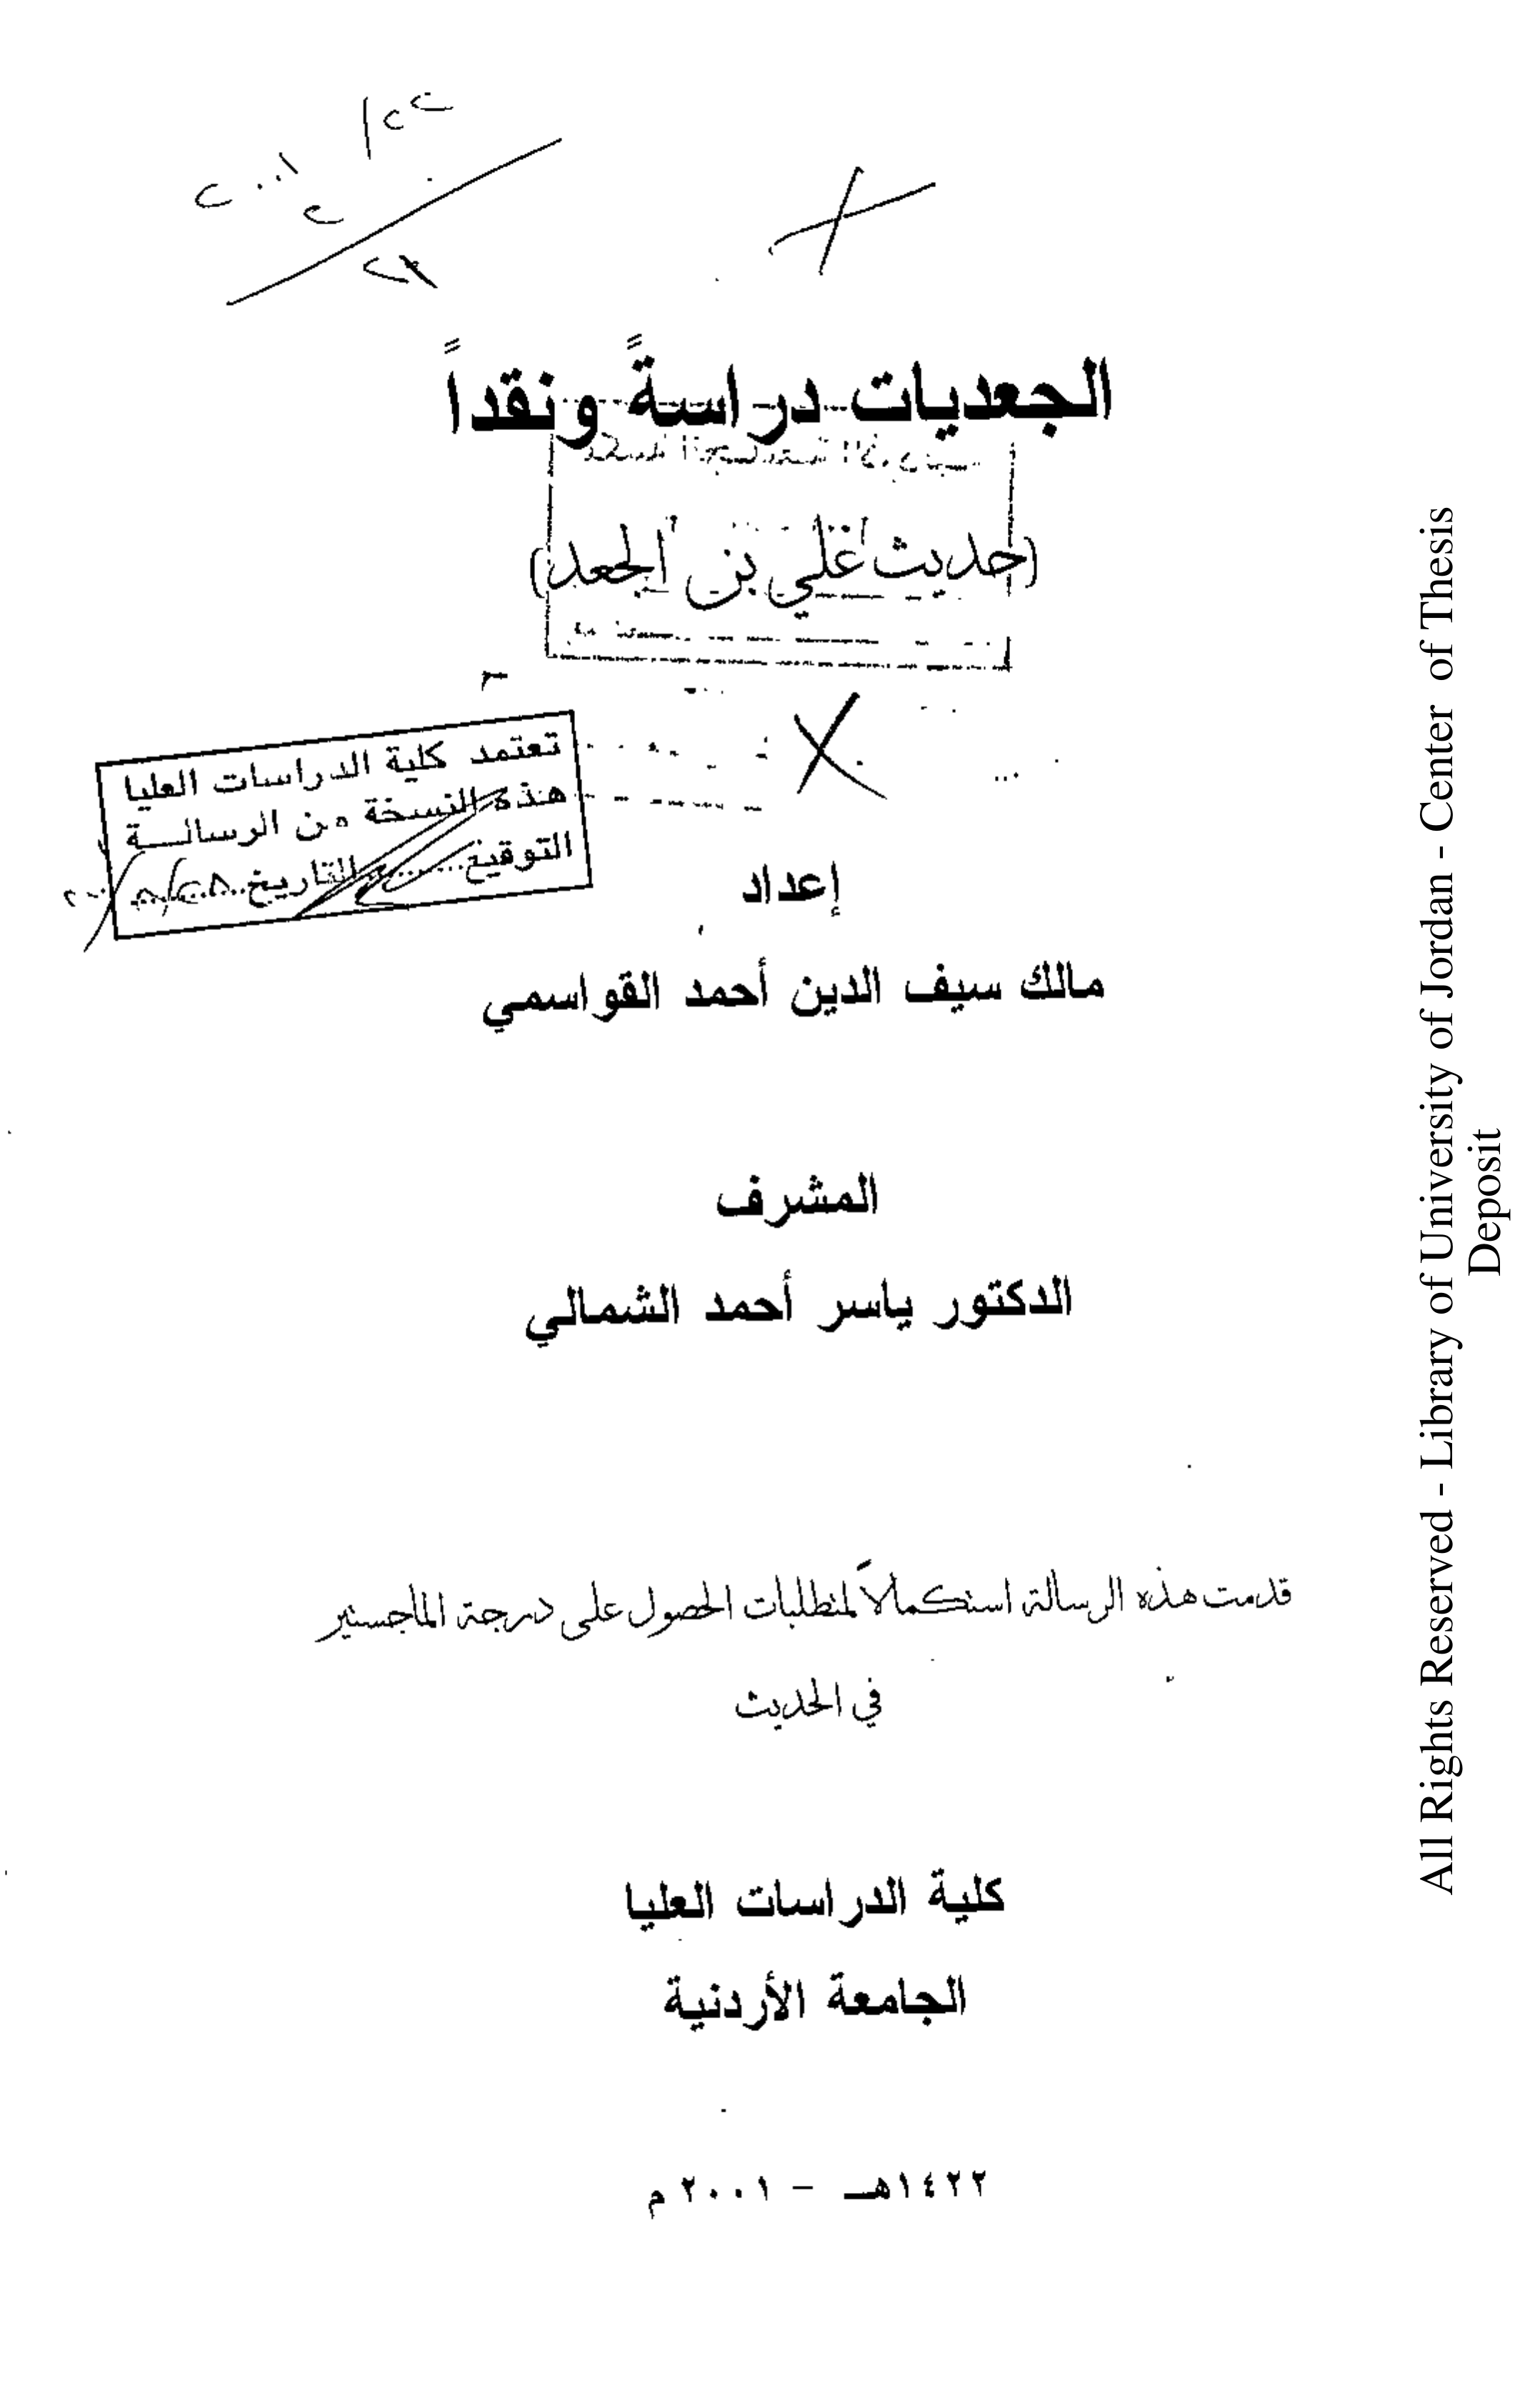 الجعديات دراسةً ونقداً
(حديث علي بن الجعد)
تعتمد كلية الدراسات العليا
هذه النسخة من الرسالـــة
التوقيع.........التاريخ
إعداد
مالك سيف الدين أحمد القواسمي
المشرف
الدكتور ياسر أحمد الشمالي
قدمت هذه الرسالة استكمالاً لمتطلبات الحصول على درجة الماجستير
في الحديث
كلية الدراسات العليا
الجامعة الأردنية
١٤٢٢هـ – ٢٠٠١ م
All Rights Reserved - Library of University of Jordan - Center of Thesis
Deposit